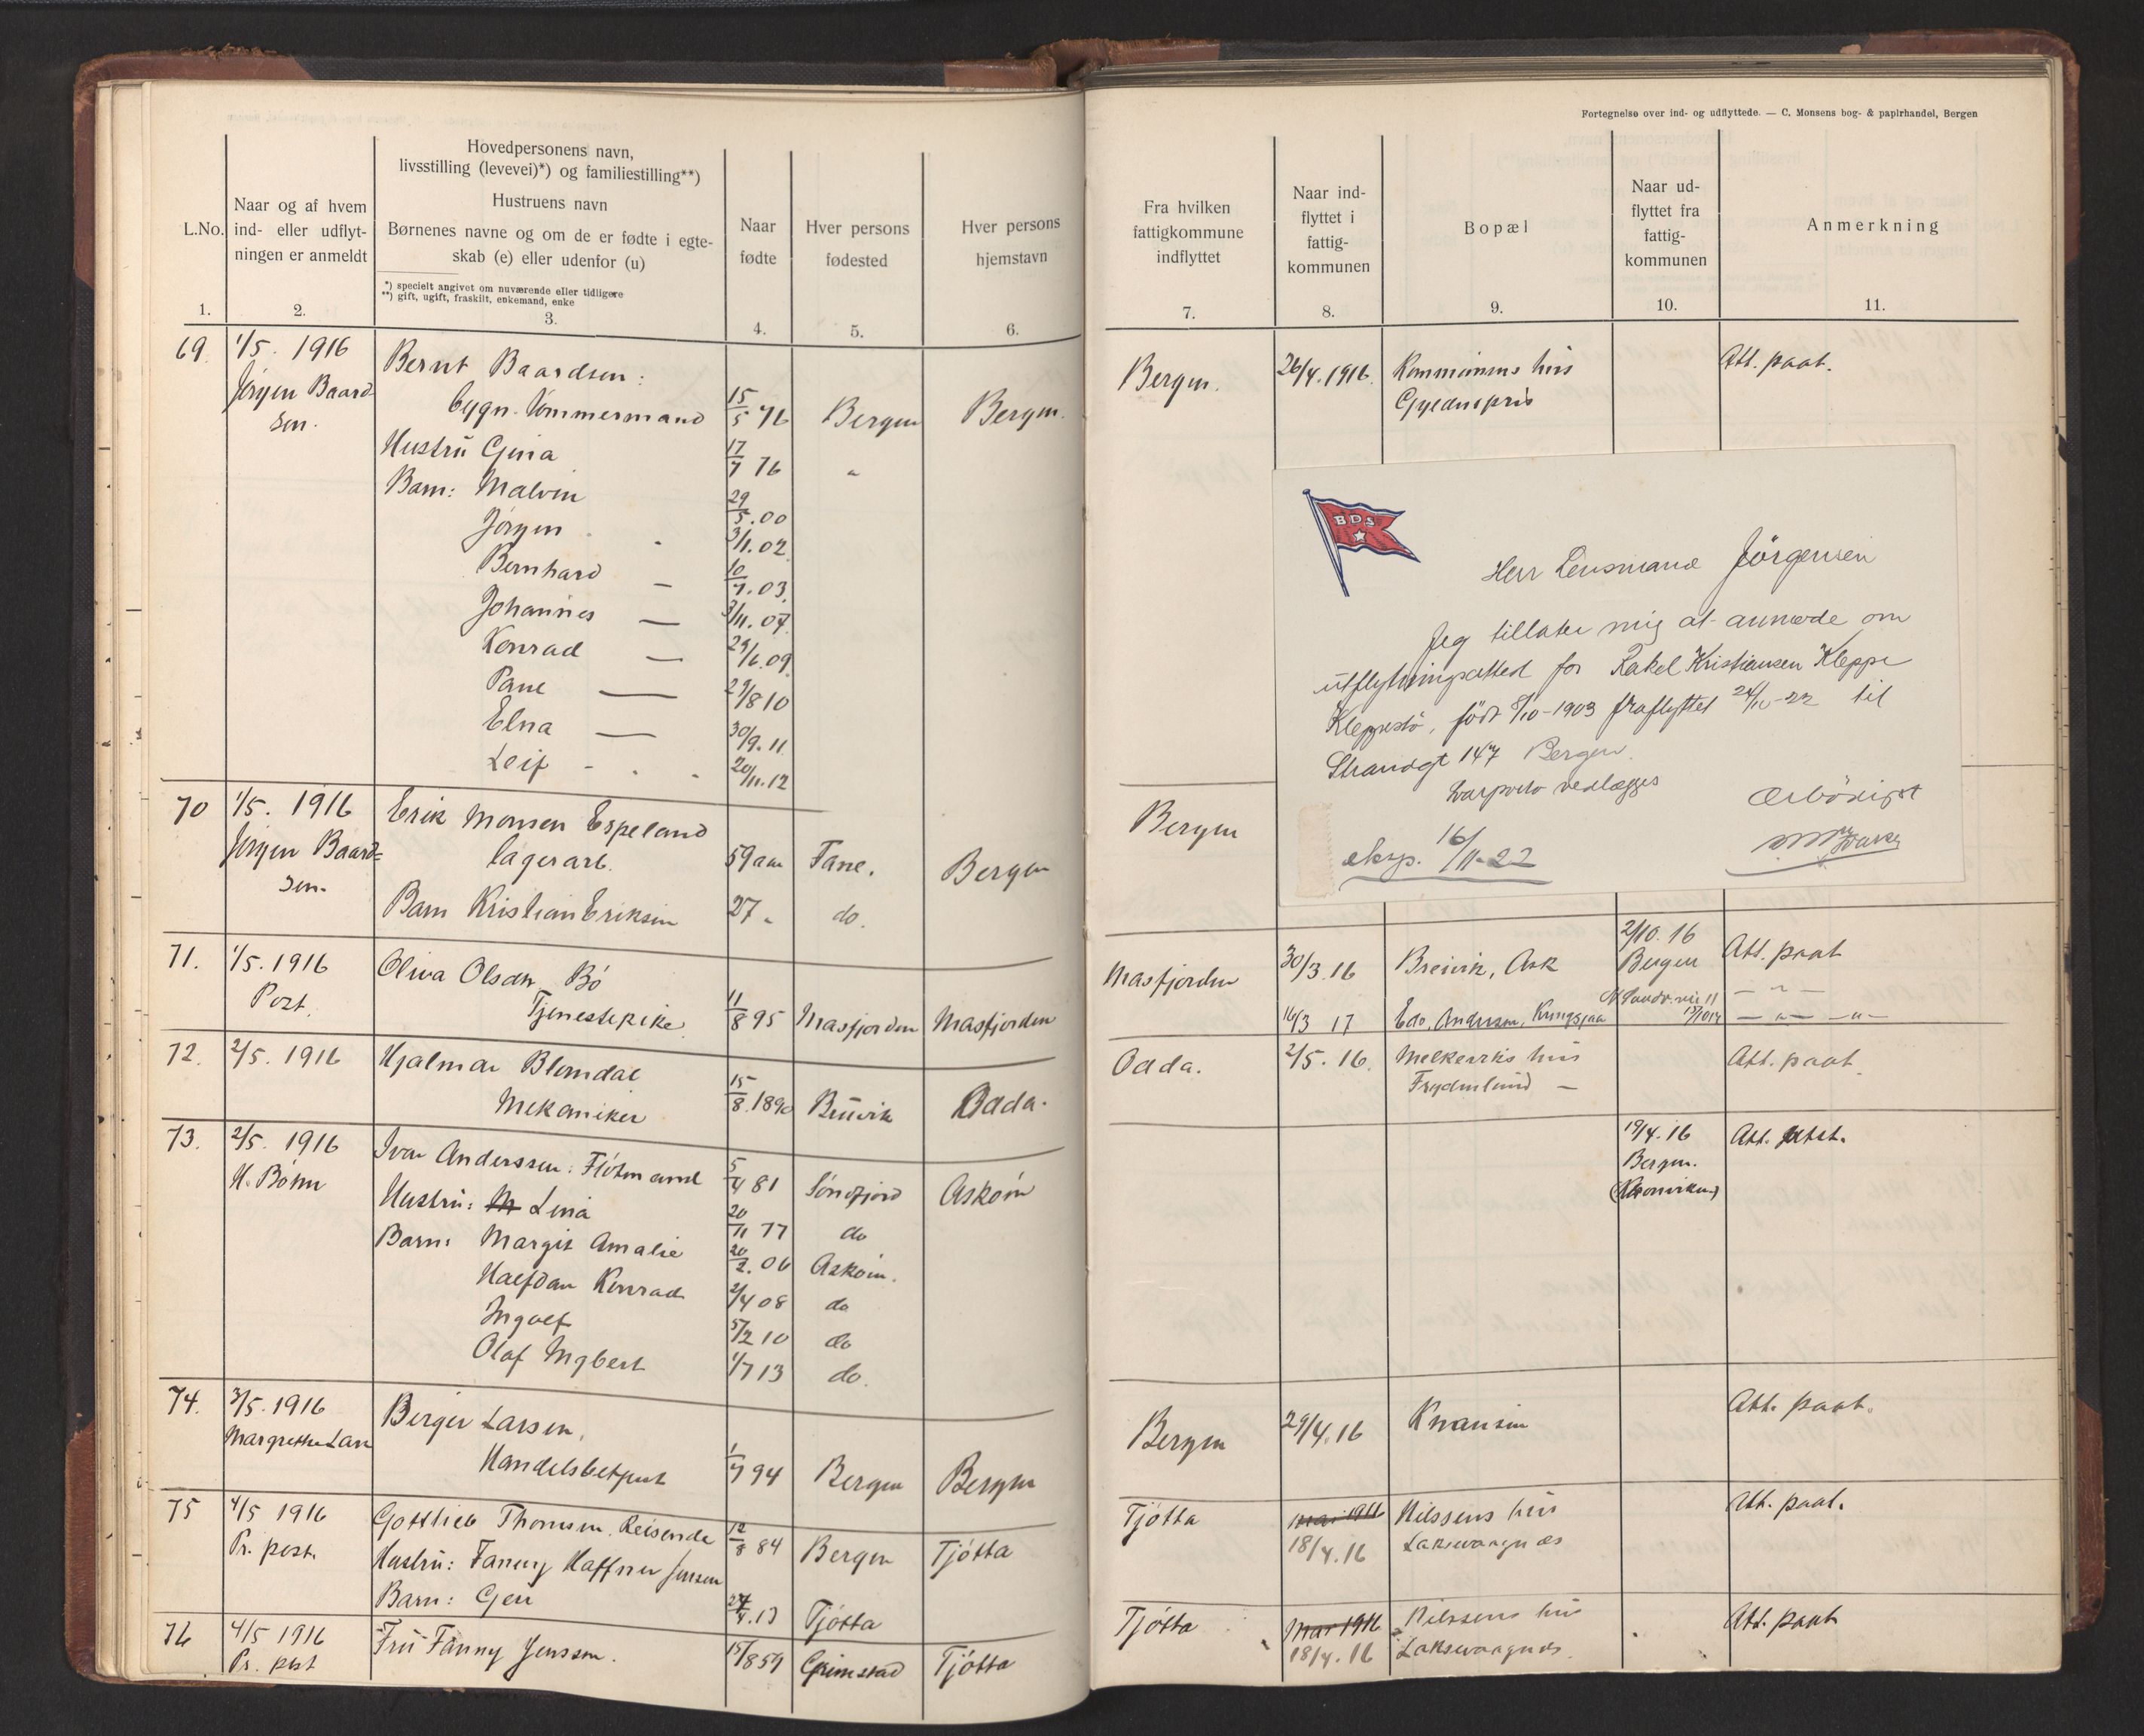 Fortegnelse over ind- og udflyttede. — C. Monsens bog- & papirhandel, Bergen
L.No.
Naar og af hvem
ind- eller udflyt-
ningen er anmeldt
Hovedpersonens navn,
livsstilling (levevei)*) og familiestilling**)
Hustruens navn
Børnenes navne og om de er fødte i egte-
skab (e) eller udenfor (u)
*) specielt angivet om nuværende eller tidligere
**) gift, ugift, fraskilt, enkemand, enke
Naar
fødte
Hver persons
fødested
Hver persons
hjemstavn
Fra hvilken
fattigkommune
indflyttet
Naar ind-
flyttet i
fattig-
kommunen
Bopæl
Naar ud-
flyttet fra
fattig-
kommunen
Anmerkning
1. 2. 3. 4. 5. 6. 7. 8. 9. 10. 11.
69 1/5. 1916 Bernt Baardsen: Bergen. 26/4.1916. Kommunens hus Att. paat.
Jørgen Baard-
sen. bygn. tømmermand 15/5 76 Bergen Bergen.
Hustru Gina 17/7 76 "
Barn: Malvin 29/5.00
Jørgen 3/11.02
Bernhard — 10/7.03
Johannes — 3/11.07
Konrad — 29/6.09
— 29/8 10
Elna — 30/9.11
Leif - 20/11.12
BDS
Herr Lensmand Jörgensen
Jeg tillater mig at anmode om
utflytningsattest for Rakel Kristiansen Kleppe
Kleppestö, födt 8/10-1903 fraflyttet 24/10-22 til
Strandgt 147 Bergen.
Svarporto vedlægges
Ærbödigst
eksp. 16/11-22
70 1/5. 1916 Erik Monsen Espeland Bergen
Jørgen Baard=
sen. lagerarb. 59 aar Fane. Bergen
Barn Kristian Eriksen 27 " do.
71. 1/5.1916 Oliva Olsdtr Bö Masfjorden 30/3.16 Breivik, Ask 2/10.16 Att. paat
Bergen
Post. Tjenestepike 11/8 95 Masfjorden Masfjorden 16/3 17 Edv. Andersen,
72. 2/5. 1916 Hjalmar Blomdal Odda. 2/5.16. Melkeviks hus Att. paat.
Frydenlund —
Mekaniker 15/8.1890 Bruvik Odda.
73. 2/5. 1916 Ivar Anderssen: Flötmand 5/4 81 Söndfjord Asköin 19/4.16 Att. utst.
Bergen.
Hustru: Lina 20/11 77 do
Barn: Margit Amalie 20/2.06 Asköin.
Halfdan Konrad 2/4 08 do
Ingolf 5/2 10 do
Olaf Ingbert 1/7 13 do.
74. 3/5.1916 Berger Larsen, Bergen 29/4.16 Knausen Att. paat.
Margrethe Lars
Handelsbetjent 1/7 94 Bergen Bergen
75 4/5 1916 Gottlieb Thomsen. Reisende 12/8 84 Bergen Tjötta Tjötta mai 1916 Nilssens hus Att. paat.
18/4.16 Laksevaagnæs
Pr. post. Hustru: Fanny Haffner Jensen
Barn: Geir 27/4.13 Tjötta
76 4/5 1916 Fru Fanny Jenssen. 15/8 59 Grimstad Tjötta Tjötta mai 1916 Nilssens hus Att. paat
Pr. post 18/4.16 Laksevaagnæs.